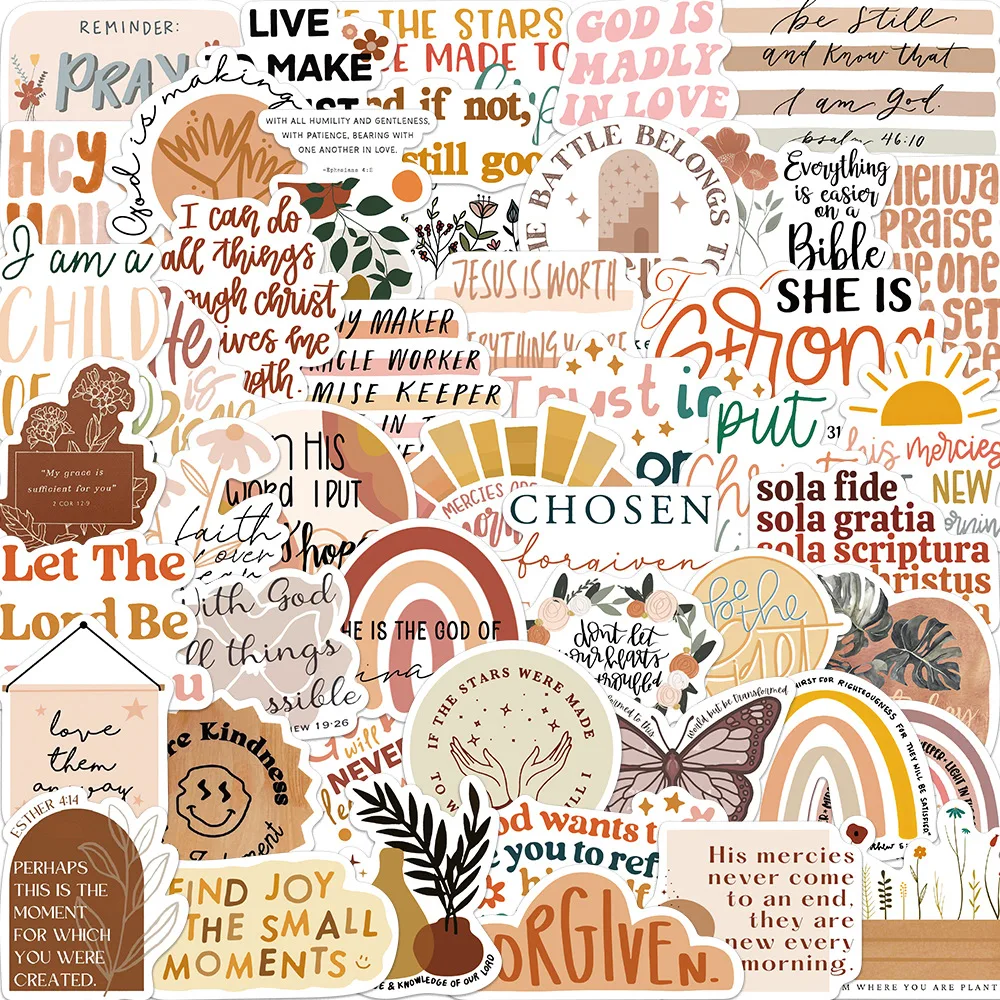 REMINDER:
PRAY
LIVE
TO MAKE
THE STARS
MADE TO
GOD IS
MADLY
IN LOVE
be still
and know that
I am God.
psalm 46:10
God is making
WITH ALL HUMILITY AND GENTLENESS,
WITH PATIENCE, BEARING WITH
ONE ANOTHER IN LOVE.
-Ephesians 4:2
and if not,
still good
Hey
THE BATTLE BELONGS TO
Everything
is easier
on a
Bible
PRAISE
one
SET
I am a
CHILD
OF
I can do
all things
through christ
gives me
He
is
WAY MAKER
MIRACLE WORKER
PROMISE KEEPER
IN
JESUS IS WORTH
EVERYTHING
SHE IS
Strong
Trust in
or
put
31
Christ
his mercies
NEW
"My grace is
sufficient for you"
2 COR 12:9
IN HIS
word I PUT
hope
faith
over
MERCIES ARE
CHOSEN
forgiven
sola fide
sola gratia
sola scriptura
christus
Let The
Lord Be
With God
all things
possible
19:26
HE IS THE GOD OF
don't let
your hearts
troubled
be the
light
love
them
anyway
Kindness
will
NEVER
IF THE STARS WERE MADE
TO W
ILL I
to this
world but be transformed
THIRST FOR RIGHTEOUGNESS FOR THEY WILL BE SATISFIED
KEEPER • LIGHT IN
ESTHER 4:14
PERHAPS
THIS IS THE
MOMENT
FOR WHICH
YOU WERE
CREATED.
FIND JOY
THE SMALL
MOMENTS
& KNOWLEDGE OF OUR LORD
God wants
you to
FORGIVEN.
His mercies
never come
to an end,
they are
new every
morning.
WHERE YOU ARE PLANT